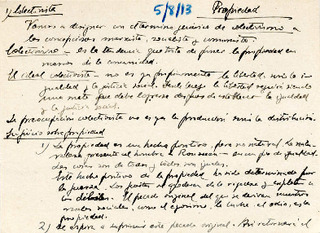 1) Colectivista 5/8/13 Propiedad
Vamos a designar con el término genérico de colectivismo a
las concepciones marxista, socialista y comunista.
Colectivismo - es la tendencia que trata de poner la propiedad en
manos de la comunidad.
El ideal colectivista - no es ya propiamente la libertad, sino la
igualdad y la justicia social. Desde luego la libertad seguirá siendo
una meta que debe lograrse después de establecer la igualdad
y la justicia social.
La preocupación colectivista no es ya la producción, sino la distribución.
Su juicio sobre propiedad
1) La propiedad es un hecho positivo, pero no natural. La
presenta al hombre a Rousseau - en un pie de igualdad.
cosas son de todos y todos son iguales.
Este hecho positivo de la propiedad ha sido determinado por
la fuerza. Los se apoderan de la riqueza y explotan a
los débiles. El pecado original del que se derivan nuestros
males sociales, como el egoísmo, la lucha, el odio, es la
propiedad.
2) Se aspira a suprimir este pecado original. Así retornará el